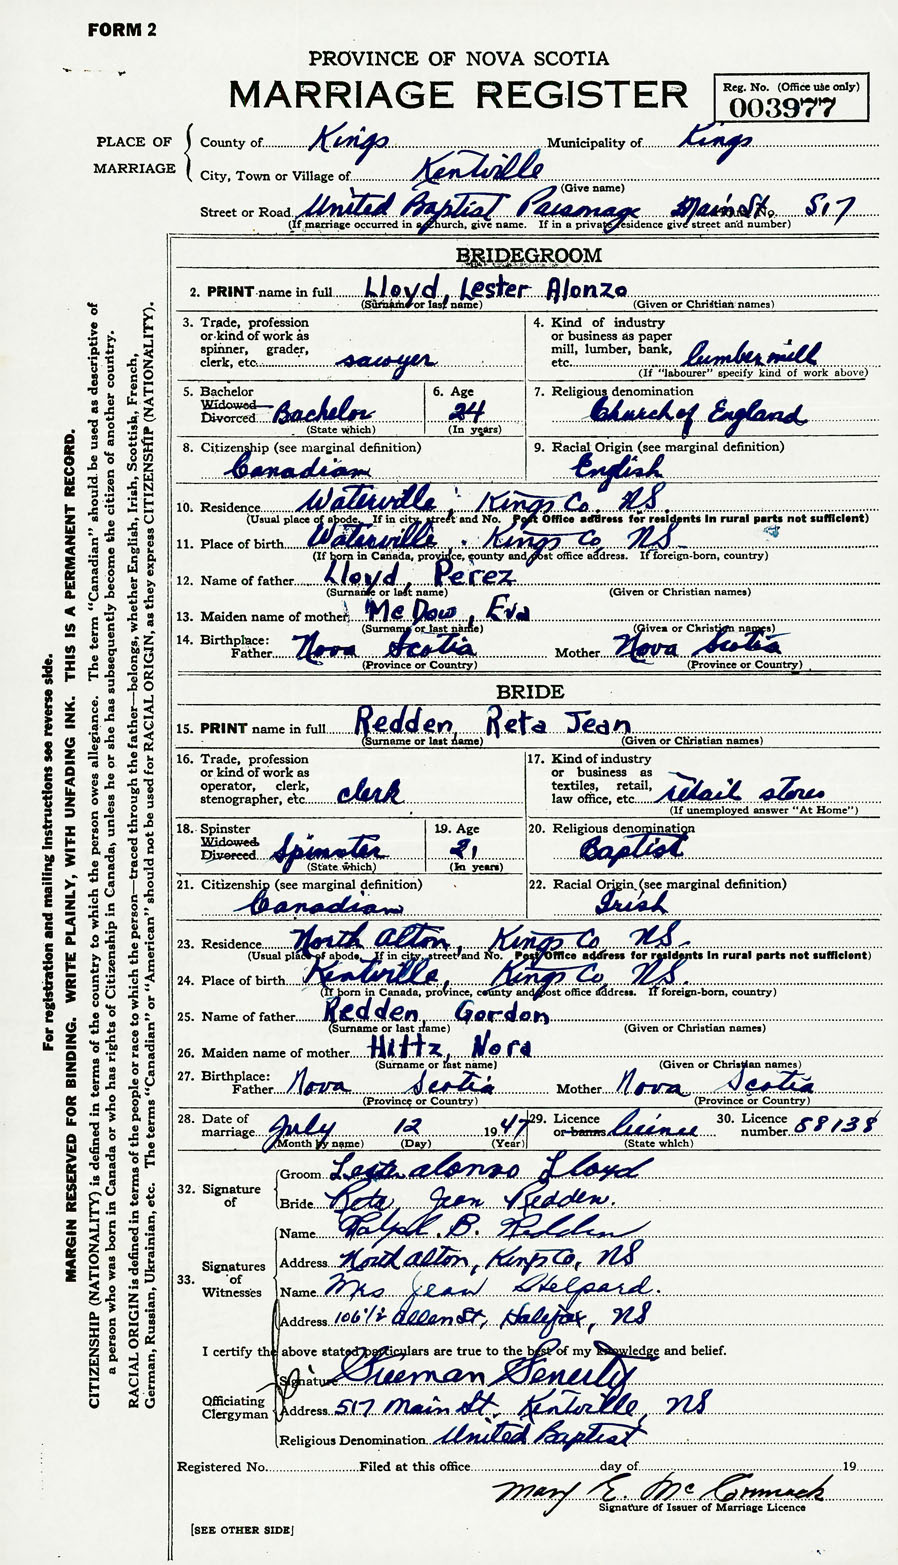 FORM 2
PROVINCE OF NOVA SCOTIA
MARRIAGE REGISTER
Reg. No. (Office use only)
003977
PLACE OF MARRIAGE
County of Kings Municipality of Kings
City, Town or Village of Kentville
(Give name)
Street or Road United Baptist Parsonage Main St. No. 517
(If marriage occurred in a church, give name. If in a private residence give street and number)
BRIDEGROOM
2. PRINT name in full Lloyd, Lester Alonzo
(Surname or last name) (Given or Christian names)
3. Trade, profession or kind of work as spinner, grader, clerk, etc. sawyer
4. Kind of industry or business as paper mill, lumber, bank, etc. lumber mill
(If "labourer" specify kind of work above)
5. Bachelor Widowed Divorced Bachelor
(State which)
6. Age 24
(In years)
7. Religious denomination
Church of England
8. Citizenship (see marginal definition)
Canadian
9. Racial Origin (see marginal definition)
English
10. Residence Waterville, Kings Co, NS.
(Usual place of abode. If in city, street and No. Post Office address for residents in rural parts not sufficient)
11. Place of birth Waterville, Kings Co, NS.
(If born in Canada, province, county and post office address. If foreign-born, country)
12. Name of father Lloyd, Perez
(Surname or last name) (Given or Christian names)
13. Maiden name of mother McDow, Eva
(Surname or last name) (Given or Christian names)
14. Birthplace: Father Nova Scotia Mother Nova Scotia
(Province or Country) (Province or Country)
BRIDE
15. PRINT name in full Redden, Reta Jean
(Surname or last name) (Given or Christian names)
16. Trade, profession or kind of work as operator, clerk, stenographer, etc. clerk
17. Kind of industry or business as textiles, retail, law office, etc. retail stores
(If unemployed answer "At Home")
18. Spinster Widowed Divorced Spinster
(State which)
19. Age 21
(In years)
20. Religious denomination
Baptist
21. Citizenship (see marginal definition)
Canadian
22. Racial Origin (see marginal definition)
Irish
23. Residence North Alton, Kings Co, NS.
(Usual place of abode. If in city, street and No. Post Office address for residents in rural parts not sufficient)
24. Place of birth Kentville, Kings Co, NS.
(If born in Canada, province, county and post office address. If foreign-born, country)
25. Name of father Redden, Gordon
(Surname or last name) (Given or Christian names)
26. Maiden name of mother Hiltz, Nora
(Surname or last name) (Given or Christian names)
27. Birthplace: Father Nova Scotia Mother Nova Scotia
(Province or Country) (Province or Country)
28. Date of marriage July 12 1947
(Month by name) (Day) (Year)
29. Licence or banns licence
(State which)
30. Licence number 88138
32. Signature of
Groom Lester Alonzo Lloyd
Bride Reta Jean Redden.
33. Signatures of Witnesses
Name Ralph B. Redden
Address North Alton, Kings Co, NS
Name Mrs Jean Shelpard.
Address 106 1/2 Allen St, Halifax, NS
I certify the above stated particulars are true to the best of my knowledge and belief.
Officiating Clergyman
Signature Freeman Fenerty
Address 517 Main St. Kentville, NS
Religious Denomination United Baptist
Registered No. Filed at this office day of 19
Mary E. McCormack
Signature of Issuer of Marriage Licence
[SEE OTHER SIDE]
For registration and mailing instructions see reverse side.
MARGIN RESERVED FOR BINDING. WRITE PLAINLY, WITH UNFADING INK. THIS IS A PERMANENT RECORD.
CITIZENSHIP (NATIONALITY) is defined in terms of the country to which the person owes allegiance. The term "Canadian" should be used as descriptive of
a person who was born in Canada or who has rights of Citizenship in Canada, unless he or she has subsequently become the citizen of another country.
RACIAL ORIGIN is defined in terms of the people or race to which the person—traced through the father—belongs, whether English, Irish, Scottish, French,
German, Russian, Ukrainian, etc. The terms "Canadian" or "American" should not be used for RACIAL ORIGIN, as they express CITIZENSHIP (NATIONALITY).